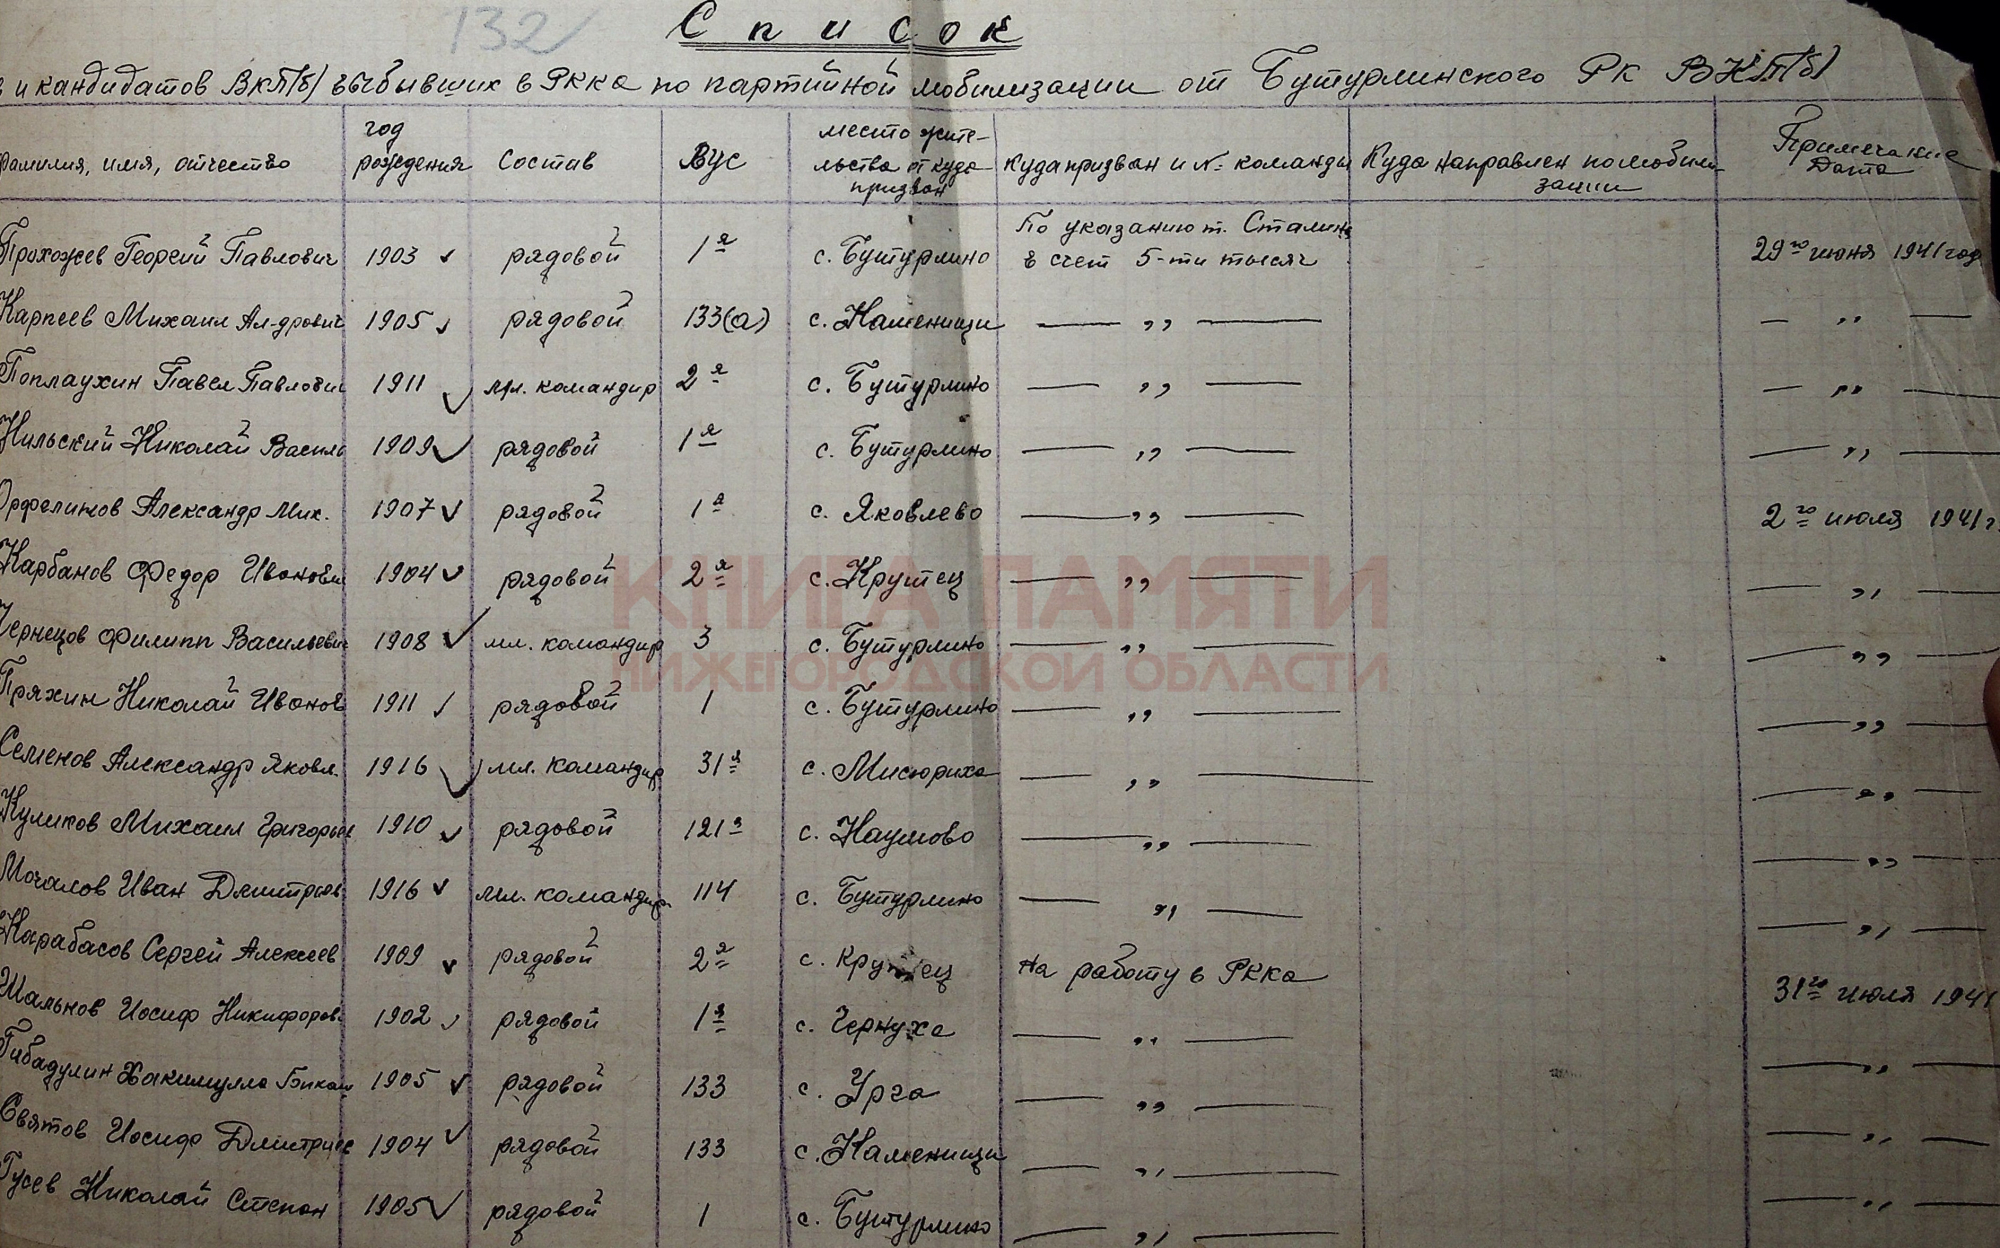 132
Список
и кандидатов ВКП(б) выбывших в РККА по партийной мобилизации от Бутурлинского РК ВКП(б)
фамилия, имя, отчество год рождения Состав ВУС место жительства откуда призван Куда призван и № команды Куда направлен по мобилизации Примечание Дата
Прохожев Георгий Павлович 1903 рядовой 1я с. Бутурлино По указанию т. Сталина в счет 5-ти тысяч 29го июня 1941 год
Карпеев Михаил Ал-дрович 1905 рядовой 133(а) с. Каменищи — „ — — „ —
Поплаухин Павел Павлович 1911 мл. командир 2я с. Бутурлино — „ — — „ —
Нильский Николай Василь 1909 рядовой 1я с. Бутурлино — „ — — „ —
Орфелинов Александр Мих. 1907 рядовой 1я с. Яковлево — „ — 2го июля 1941 г
Карбанов Федор Иванови 1904 рядовой 2я с. Крутец — „ — — „ —
Чернецов Филипп Васильевич 1908 мл. командир 3 с. Бутурлино — „ — — „ —
Пряхин Николай Иванов 1911 рядовой 1 с. Бутурлино — „ — — „ —
Семенов Александр Яковл. 1916 мл. командир 31я с. Мисюриха — „ — — „ —
Куликов Михаил Григорьев 1910 рядовой 121я с. Наумово — „ — — „ —
Мочалов Иван Дмитриев 1916 мл. командир 114 с. Бутурлино — „ — — „ —
Карабасов Сергей Алексеев 1909 рядовой 2я с. Крутец На работу в РККА 31го июля 1941
Шальнов Иосиф Никифоров 1902 рядовой 1я с. Чернуха — „ — — „ —
Гибадулин Хакимулла 1905 рядовой 133 с. Урга — „ — — „ —
Святов Иосиф Дмитриев 1904 рядовой 133 с. Каменищи — „ — — „ —
Гусев Николай Степан 1905 рядовой 1 с. Бутурлино — „ —
КНИГА ПАМЯТИ
НИЖЕГОРОДСКОЙ ОБЛАСТИ